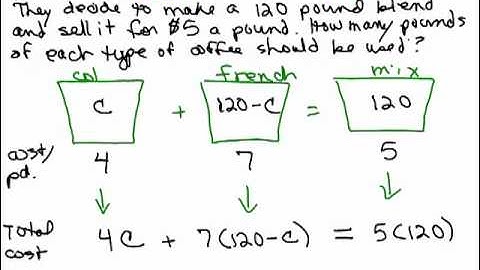 They decide to make a 120 pound blend
and sell it for $5 a pound. How many pounds
of each type of coffee should be used?
col french mix
C + 120-C = 120
cost/pd. 4 7 5
Total cost 4C + 7(120-C) = 5(120)